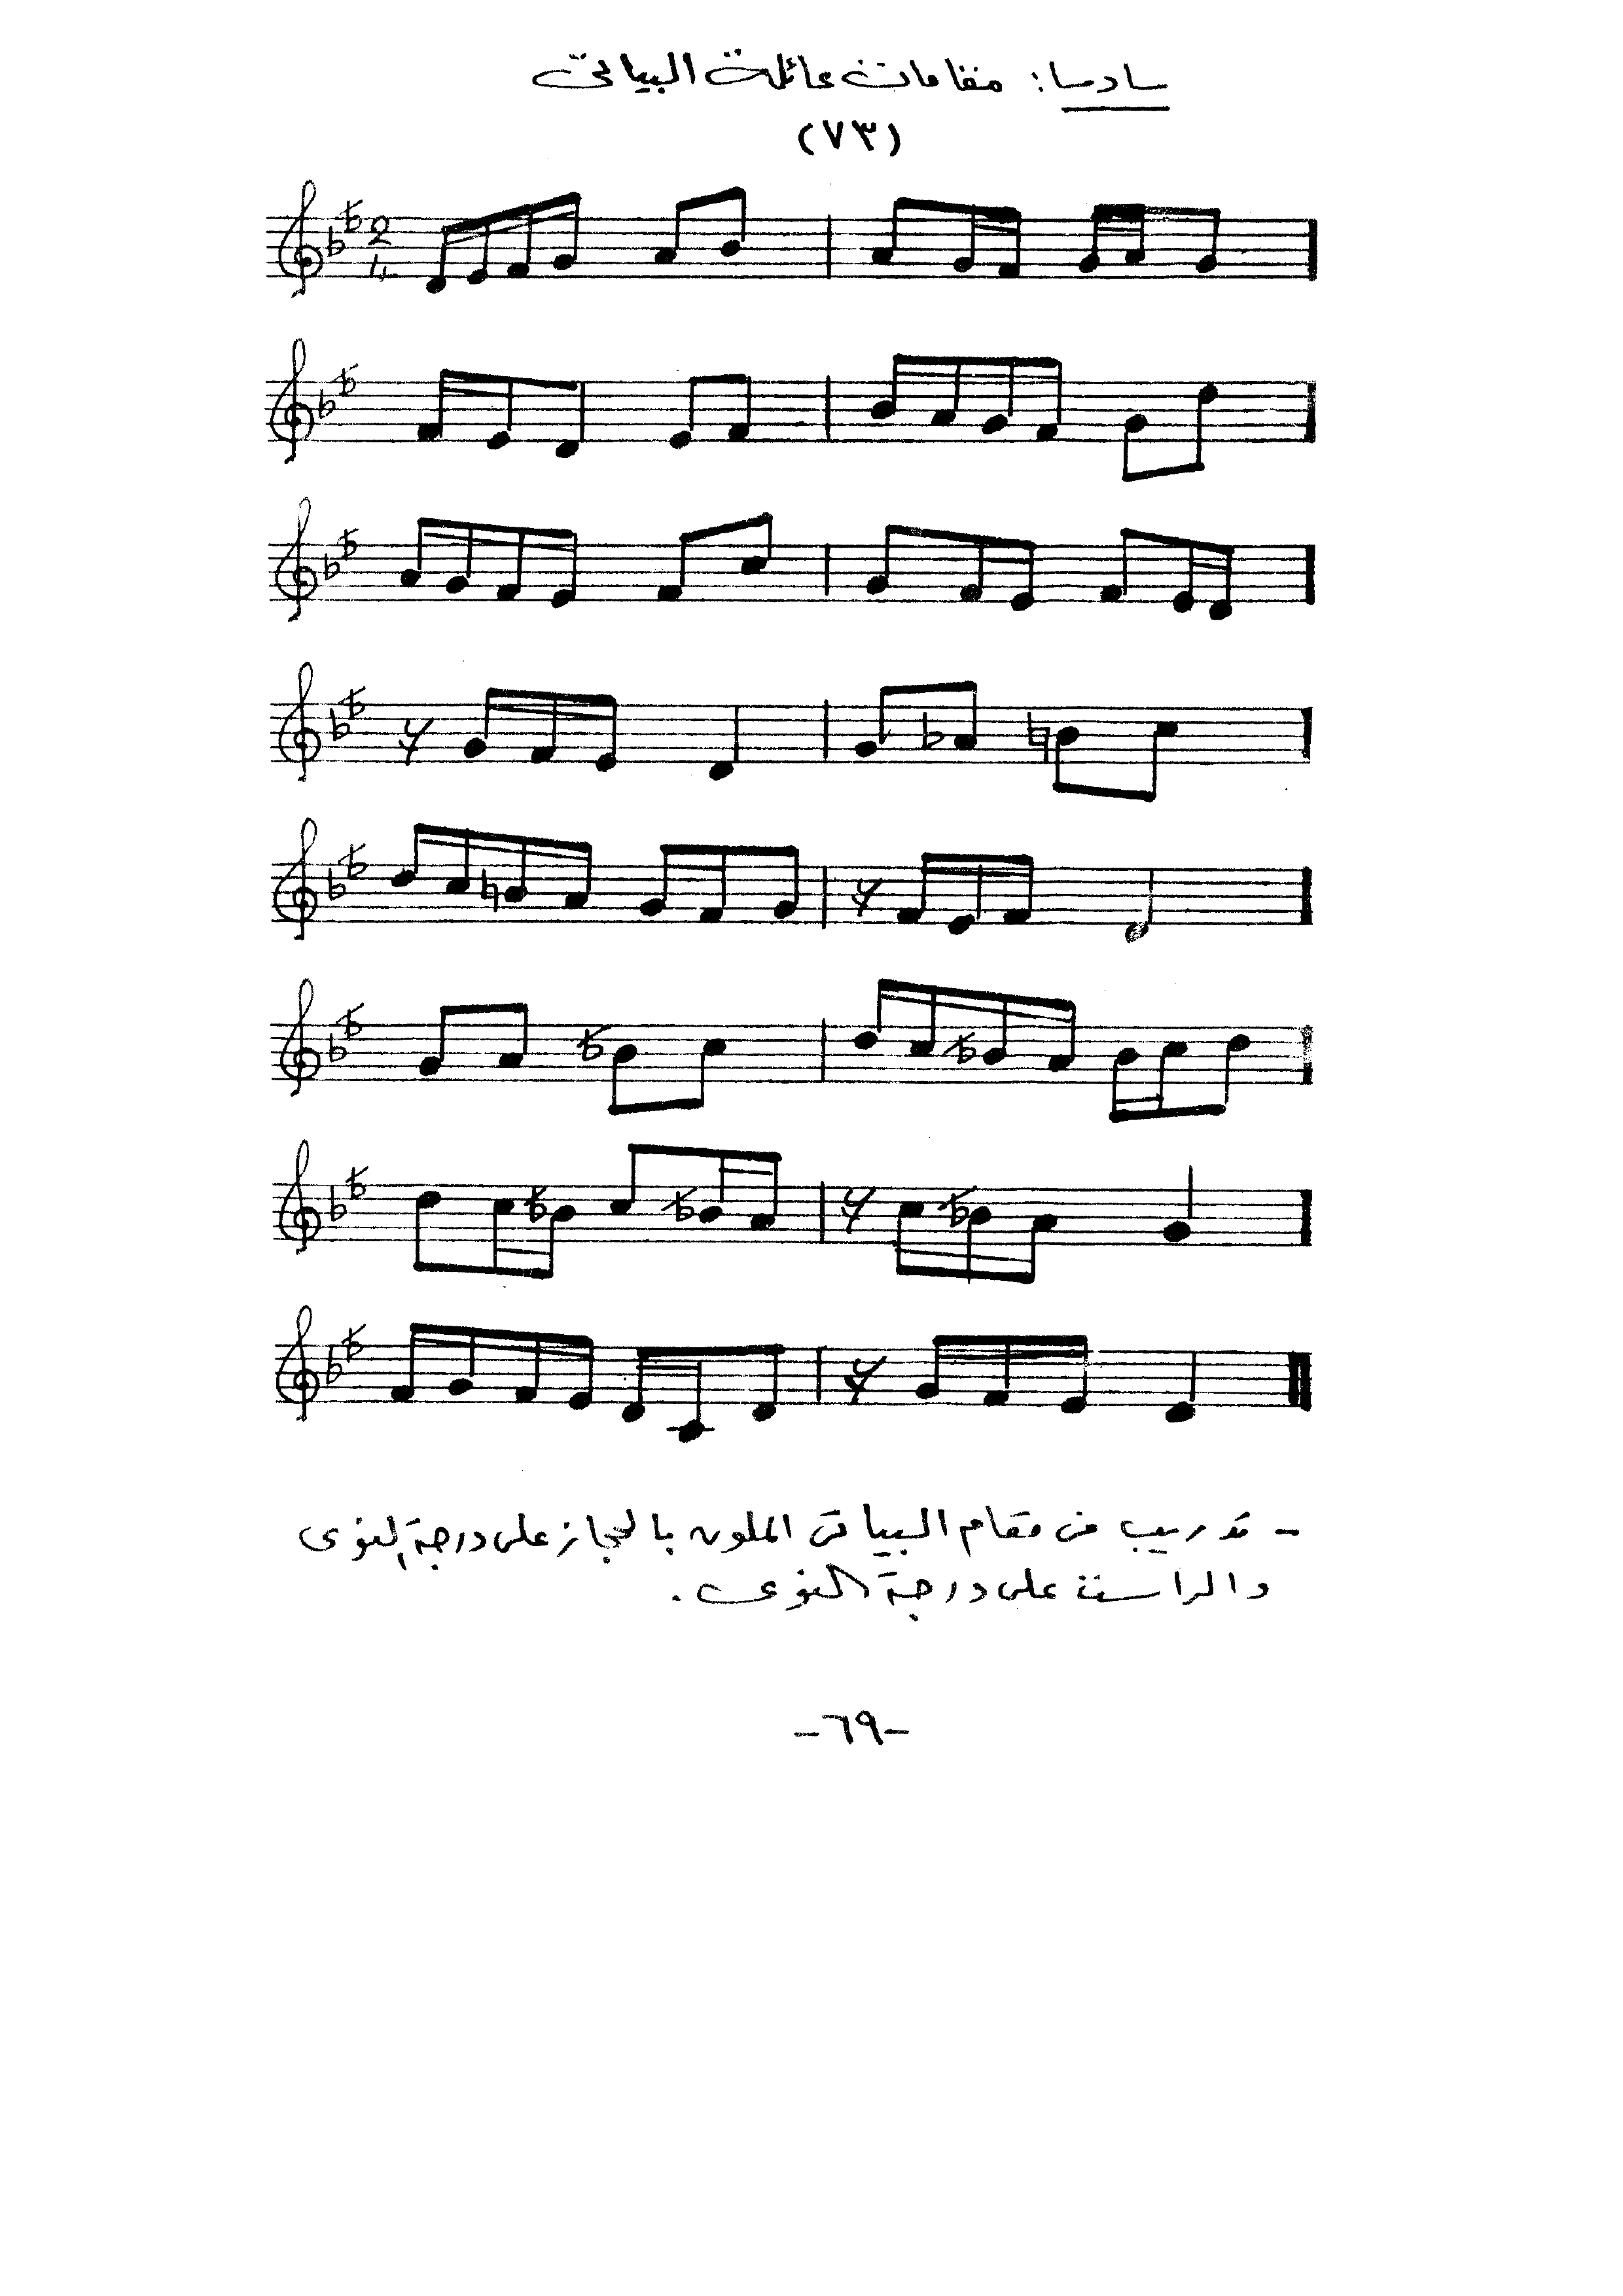 سادسا: مقامات عائلة البياتى
(٧٣)
2
4
- تدريب من مقام البياتى الملون بالحجاز على درجة النوى
والراست على درجة النوى .
-٦٩-